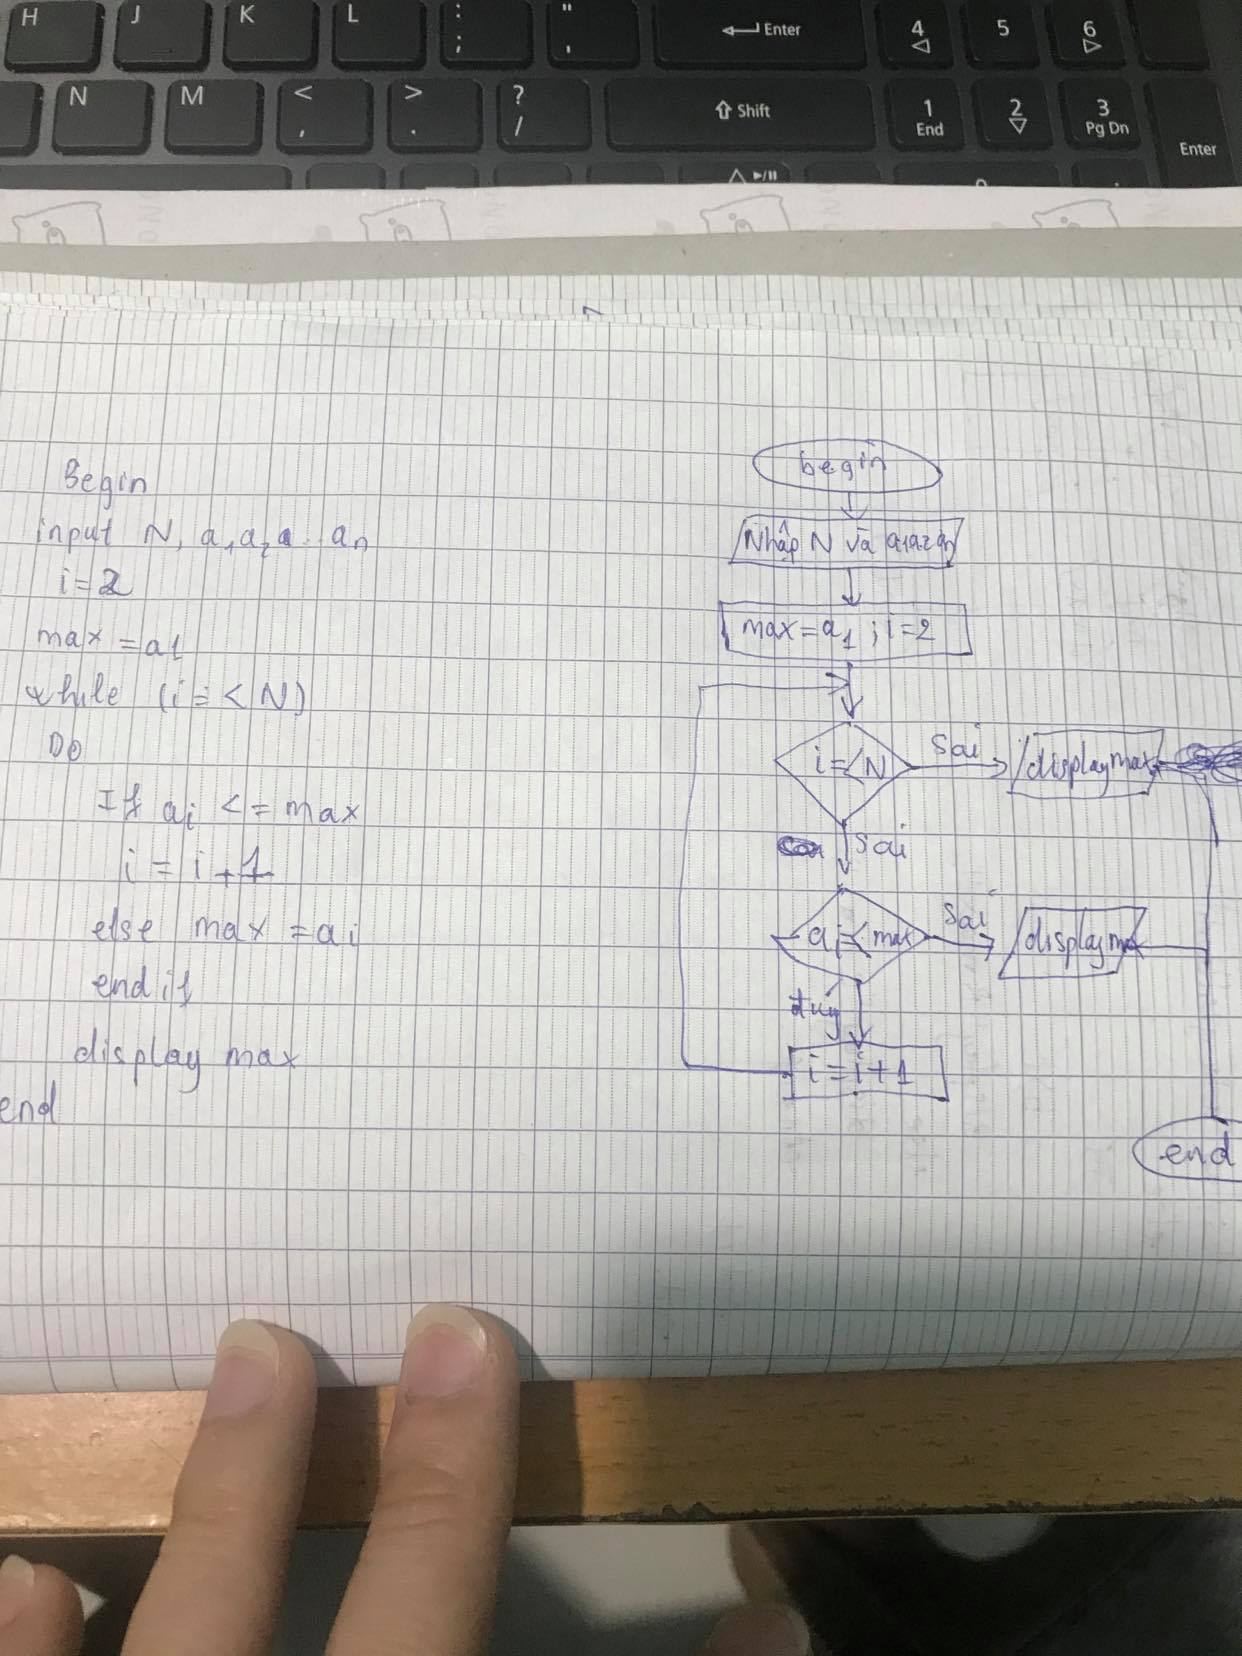 H J K L : ; " ' Enter 4 5 6
N M < , > . ? / Shift 1 End 2 3 Pg Dn Enter
Begin
input N, a1a2a...an
i=2
max =a1
while (i=<N)
Do
If ai <= max
i = i+1
else max =ai
end if
display max
end
begin
Nhập N và a1a2an
max=a1; i=2
i=<N
Sai
display max
Sai
ai=<max
Sai
display max
i=i+1
end